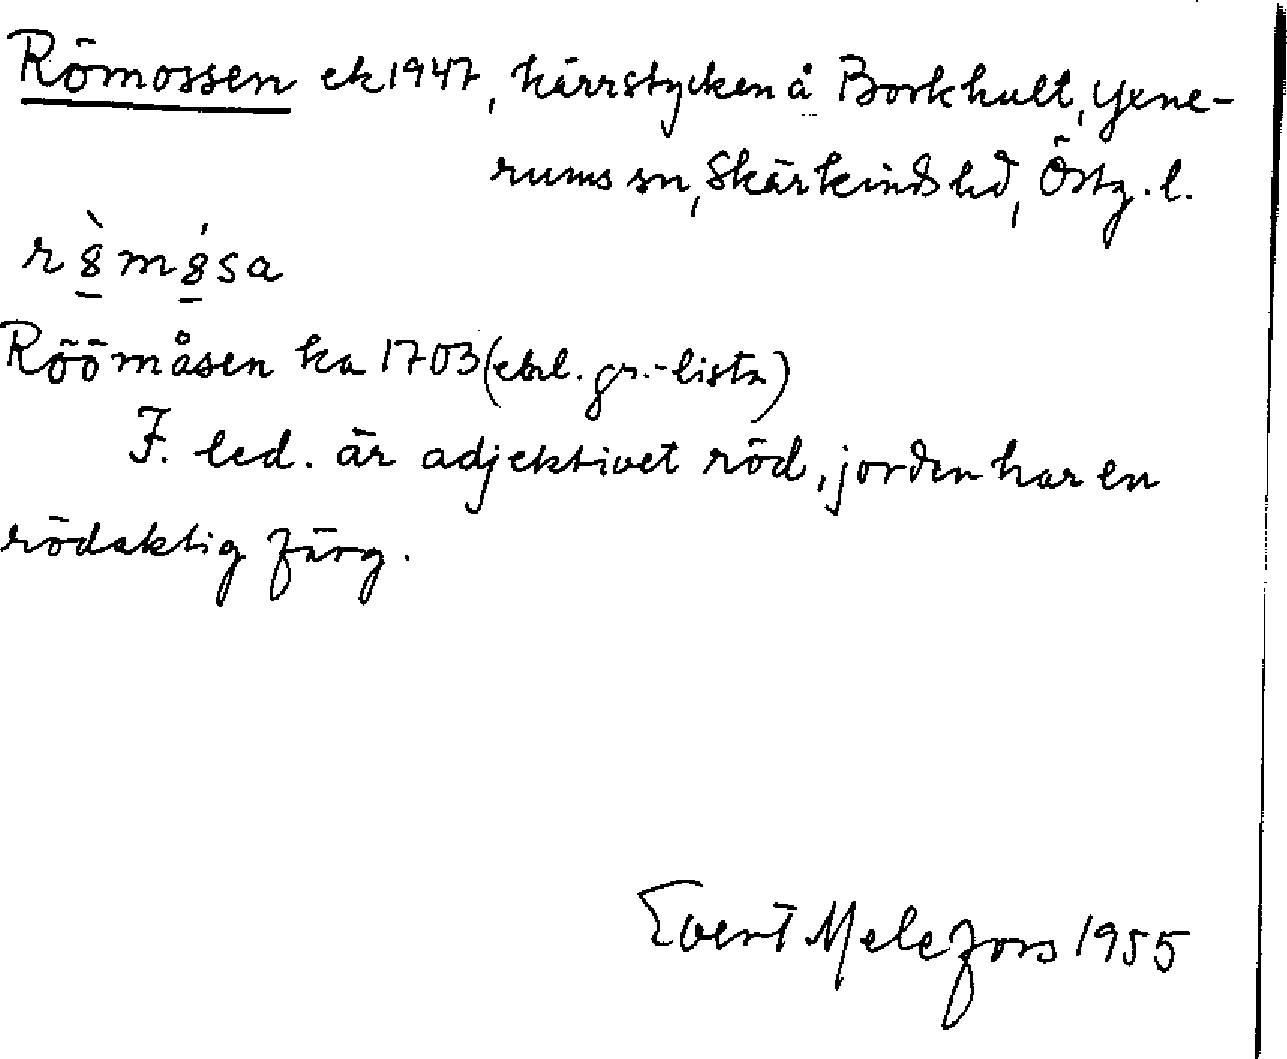 Römossen ek 1947, kärrstycken å Borkhult, Yxne-
rums sn, Skärkinds hd, Östg. l.
Röömåsen ka 1703 (ekl. gr.-lista)
F. led. är adjektivet röd, jorden har en
rödaktig färg.
Evert Melefors 1955